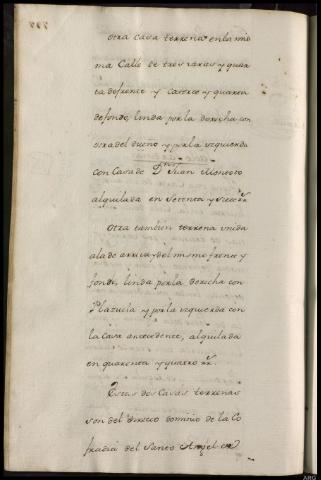 otra Casa terrena en la mis
ma Calle de tres varas y quar
ta de frente y Catorce y quarta
de fondo, linda por la derecha con
otra del dueño y por la izquierda
con Casa de Dn Juan Montoto
alquilada en Setenta y siete rr.
Otra tambien terrena unida
a la de arriva, del mismo frente y
fondo, linda por la derecha con
Plazuela y por la izquierda con
la Casa antecedente, alquilada
en quarenta y quatro rr.
Estas dos Casas terrenas
son del directo dominio de la Co
fradia del Santo Angel en
ARG